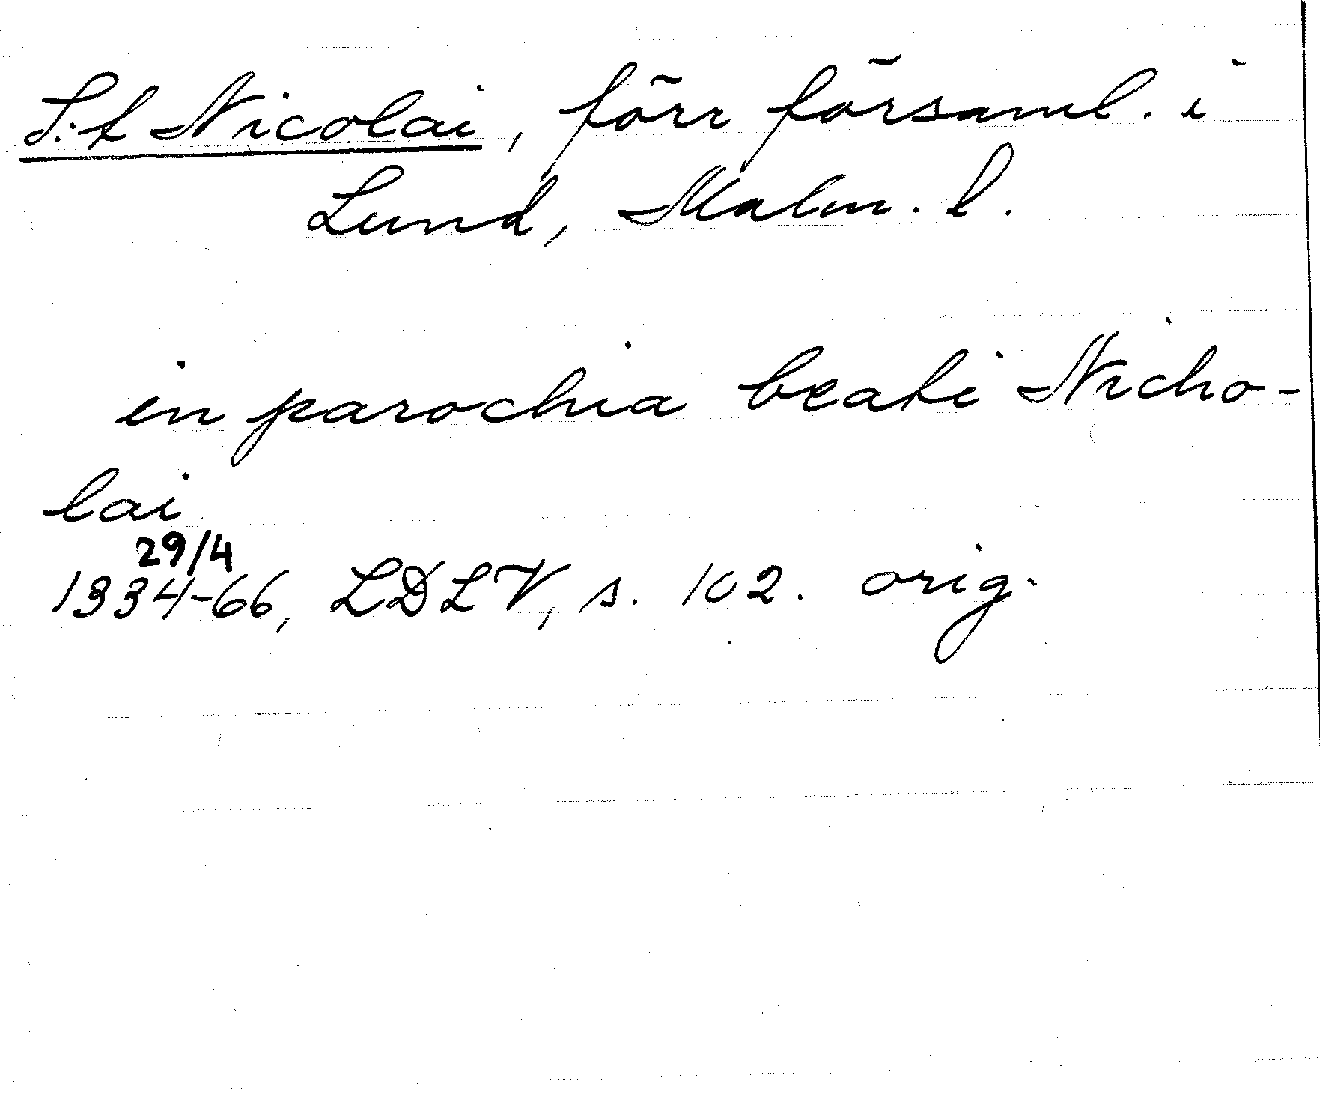 S:t Nicolai, förr församl. i
Lund, Malm. l.
in parochia beati Nicho-
lai
29/4
1334-66, LDLV, s. 102. orig.